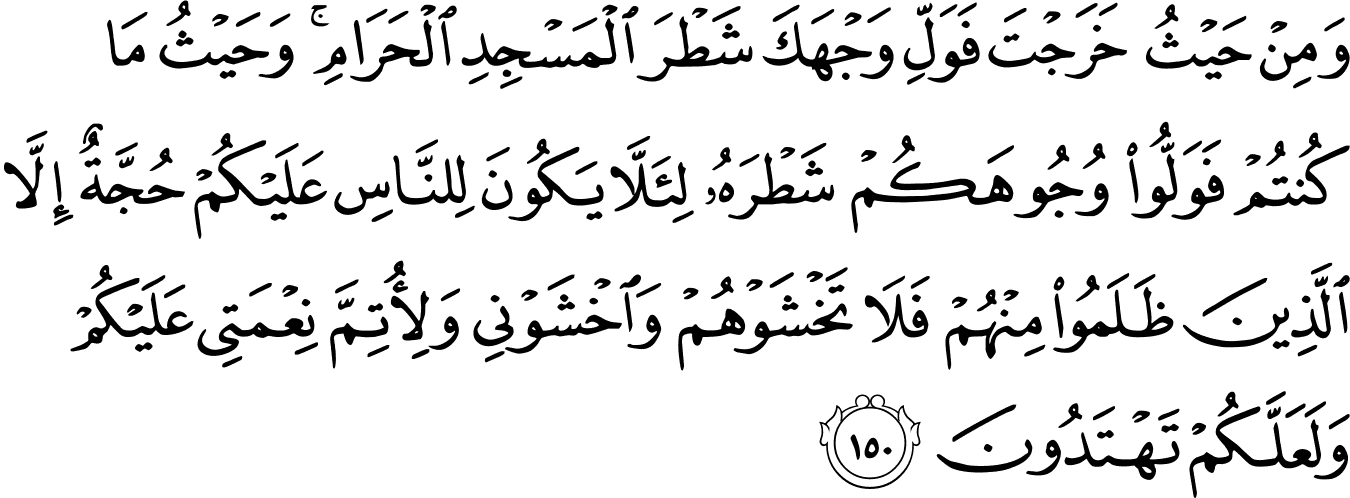 وَمِنْ حَيْثُ خَرَجْتَ فَوَلِّ وَجْهَكَ شَطْرَ ٱلْمَسْجِدِ ٱلْحَرَامِ ۚ وَحَيْثُ مَا
كُنتُمْ فَوَلُّوا۟ وُجُوهَكُمْ شَطْرَهُۥ لِئَلَّا يَكُونَ لِلنَّاسِ عَلَيْكُمْ حُجَّةٌ إِلَّا
ٱلَّذِينَ ظَلَمُوا۟ مِنْهُمْ فَلَا تَخْشَوْهُمْ وَٱخْشَوْنِى وَلِأُتِمَّ نِعْمَتِى عَلَيْكُمْ
وَلَعَلَّكُمْ تَهْتَدُونَ ١٥٠